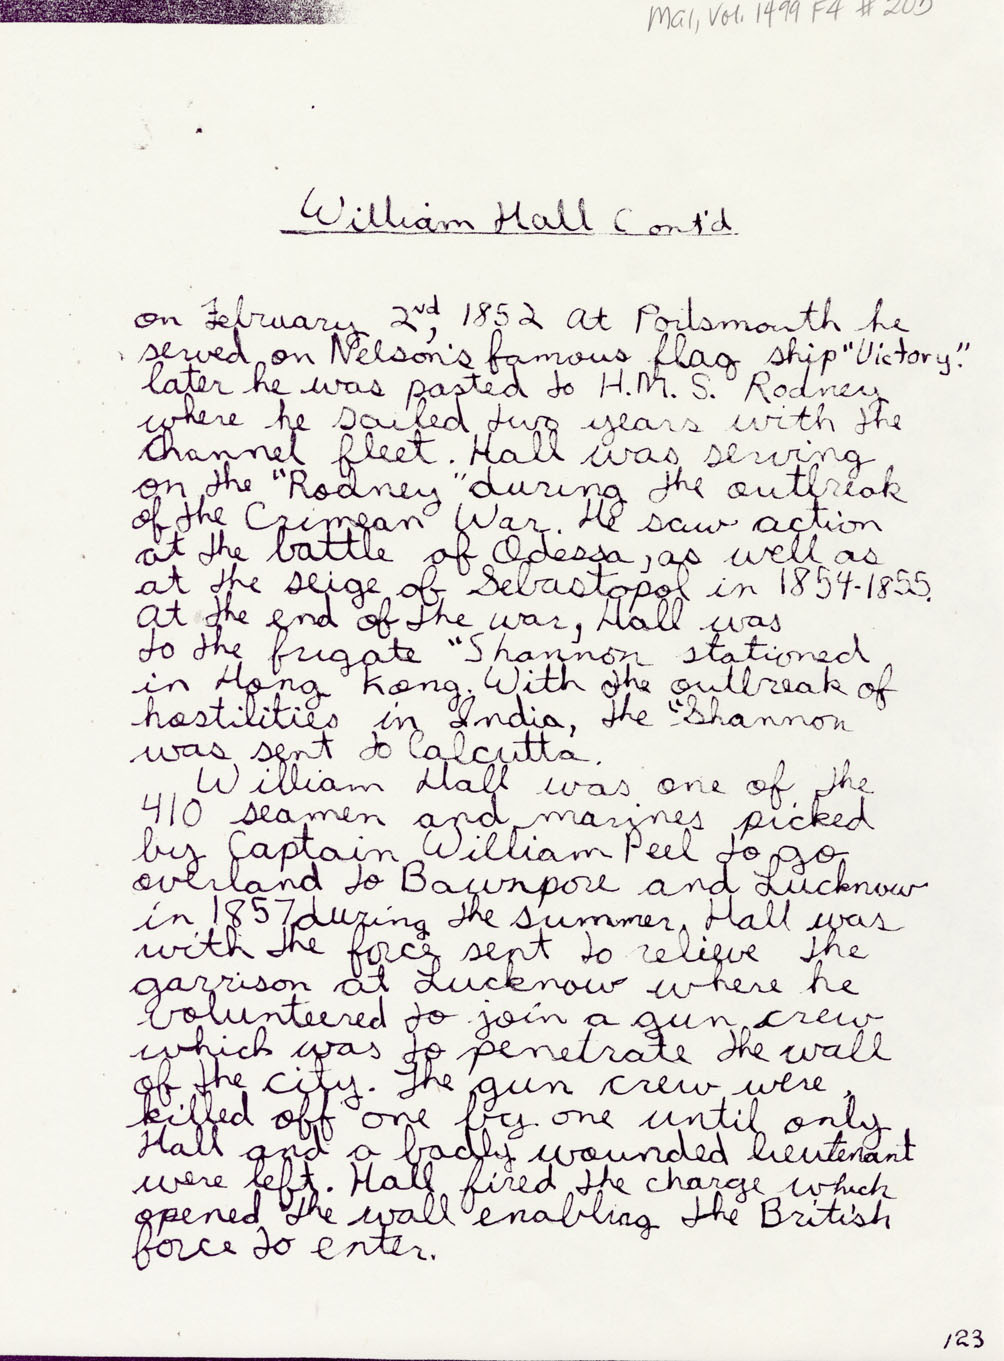 MG1, Vol. 1499 F4 # 20
William Hall Cont'd.
on February 2nd, 1852 At Portsmouth he
served on Nelson's famous flag ship "Victory."
later he was pasted to H.M.S. Rodney
where he sailed two years with the
Channel fleet. Hall was serving
on the "Rodney" during the outbreak
of the Crimean War. He saw action
at the battle of Odessa, as well as
at the seige of Sebastopol in 1854-1855.
At the end of the war, Hall was
to the frigate "Shannon stationed
in Hong Kong. With the outbreak of
hostilities in India, the "Shannon
was sent to Calcutta.
William Hall was one of the
410 seamen and marines picked
by Captain William Peel to go
overland to Bawnpore and Lucknow
in 1857 during the summer. Hall was
with the force sent to relieve the
garrison at Lucknow where he
volunteered to join a gun crew
which was to penetrate the wall
of the city. The gun crew were
killed off one by one until only
Hall and a badly wounded lieutenant
were left. Hall fired the charge which
opened the wall enabling the British
force to enter.
123